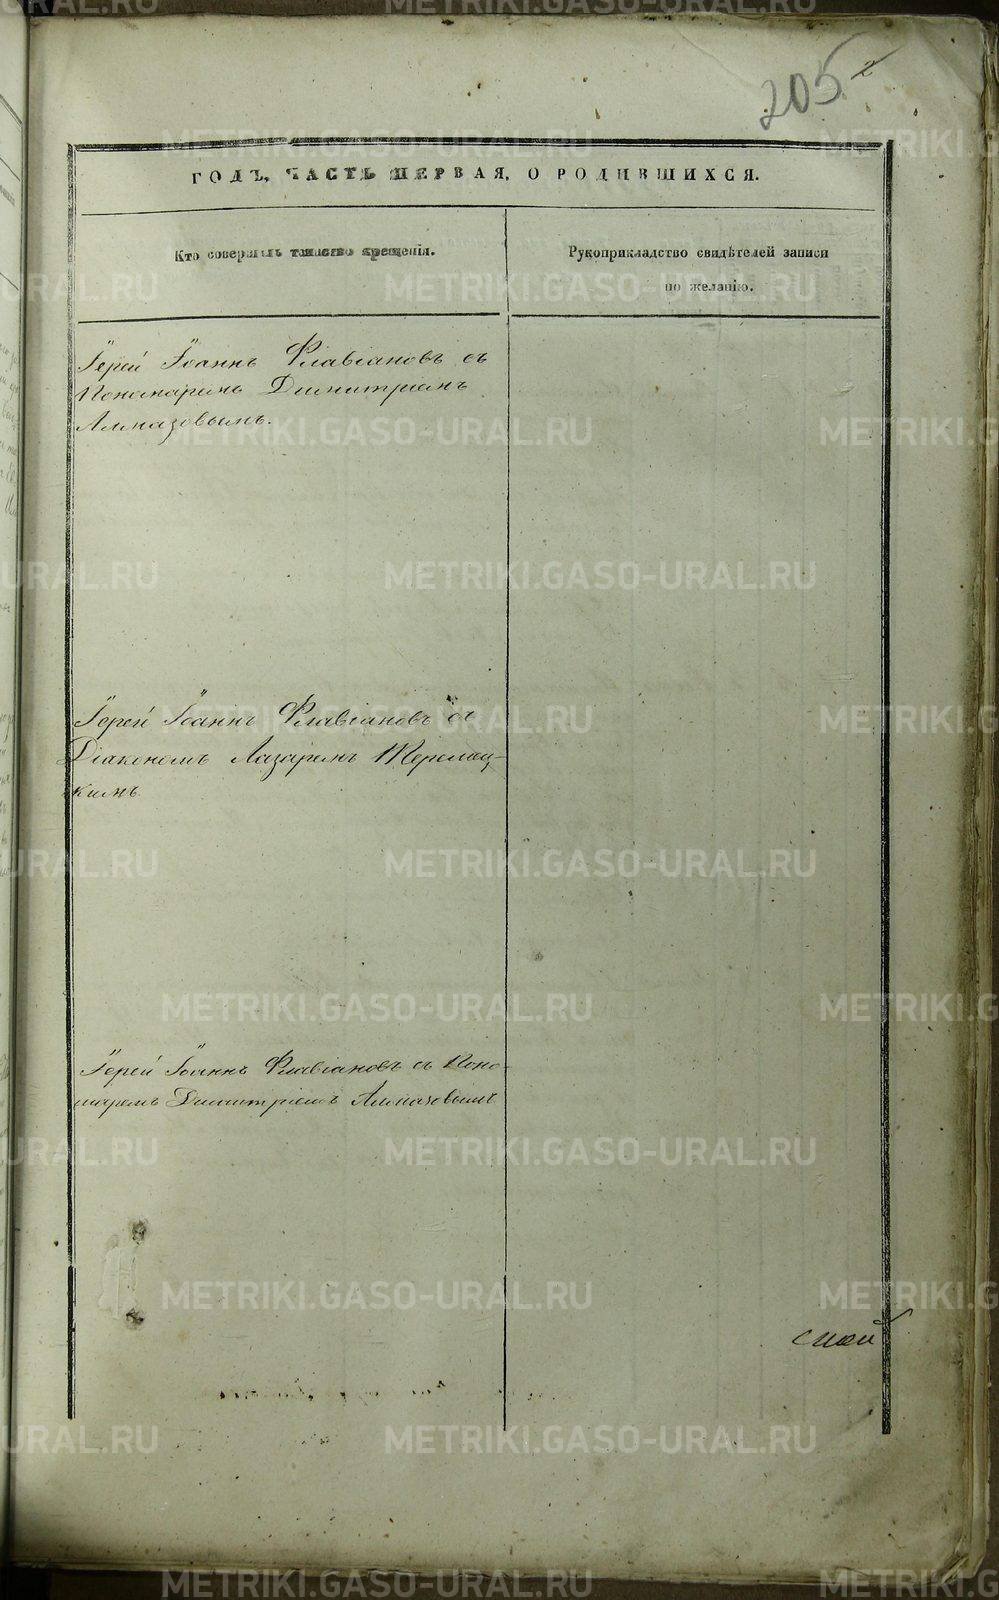 205 2
ГОДЪ, ЧАСТЬ ПЕРВАЯ, О РОДИВШИХСЯ.
Кто совершалъ таинство крещенія.
Рукоприкладство свидѣтелей записи
по желанію.
Іерей Іоаннъ Флавіановъ съ
Пономаремъ Димитріемъ
Алмазовымъ.
Іерей Іоаннъ Флавіановъ съ
Діакономъ Лазаремъ
кимъ
Іерей Іоаннъ Флавіановъ съ Поно-
маремъ Димитріемъ Алмазовымъ
METRIKI.GASO-URAL.RU